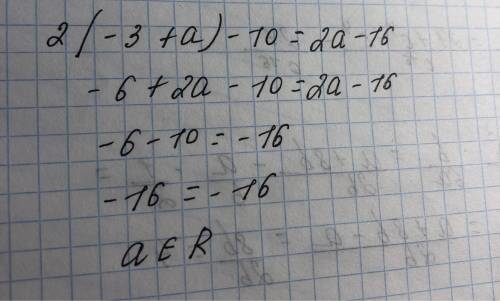 2(-3+a)-10=2a-16
-6+2a-10=2a-16
-6-10=-16
-16=-16
a∈R